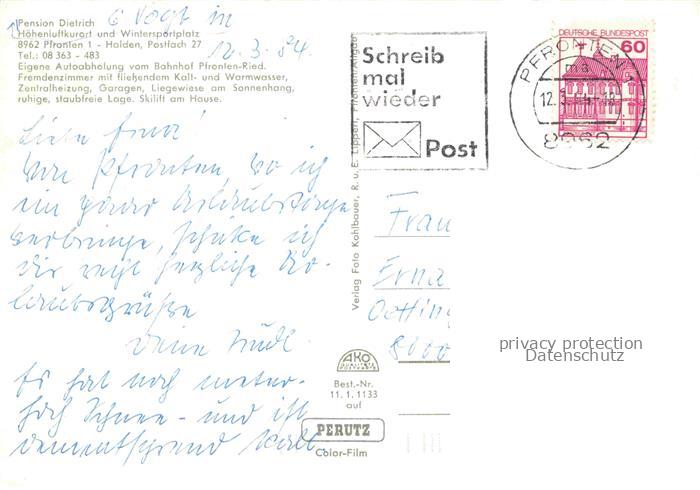 Pension Dietrich
Höhenluftkurort und Wintersportplatz
8962 Pfronten 1 - Halden, Postfach 27
Tel.: 08 363 - 483
Eigene Autoabholung vom Bahnhof Pfronten-Ried.
Fremdenzimmer mit fließendem Kalt- und Warmwasser,
Zentralheizung, Garagen, Liegewiese am Sonnenhang,
ruhige, staubfreie Lage. Skilift am Hause.
G Vogt in
12.3.84.
Liebe Erna!
Von Pfronten, wo ich
ein paar Urlaubstage
verbringe, schicke ich
dir recht herzliche Ur-
laubsgrüße
Deine
Es hat noch meter-
hoch Schnee - und ist
dementsprend kalt.
Verlag Foto Kohlbauer, R. u. E. Lippert, Pfronten/Allgäu
Schreib
mal
wieder
Post
DEUTSCHE BUNDESPOST
60
PFRONTEN
12.3.84-18
8962
Frau
Erna
Oetting
8000
privacy protection
Datenschutz
AKO
Best.-Nr.
11. 1. 1133
auf
PERUTZ
Color-Film